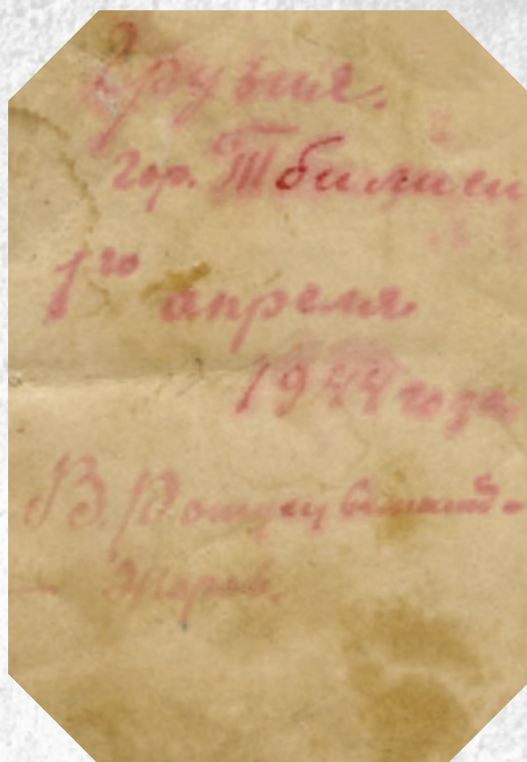 Грузия.
гор. Тбилиси
1го апреля
1944 года
В.